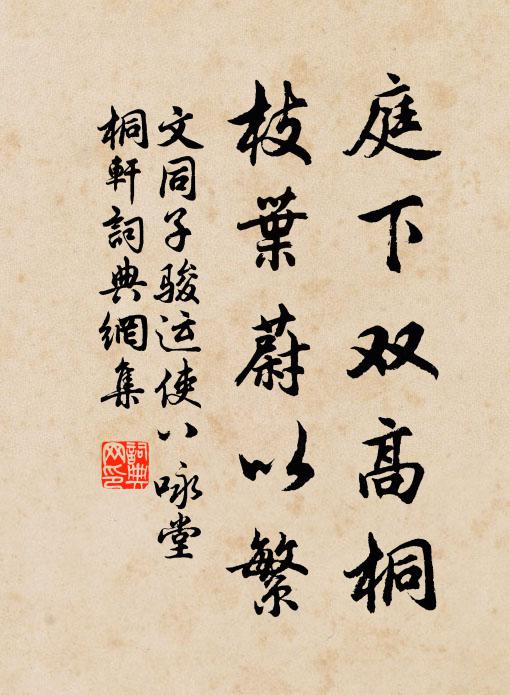 庭下双高桐
枝葉蔚以繁
文同子骏运使八咏堂
桐軒詞典網集
詞典网印